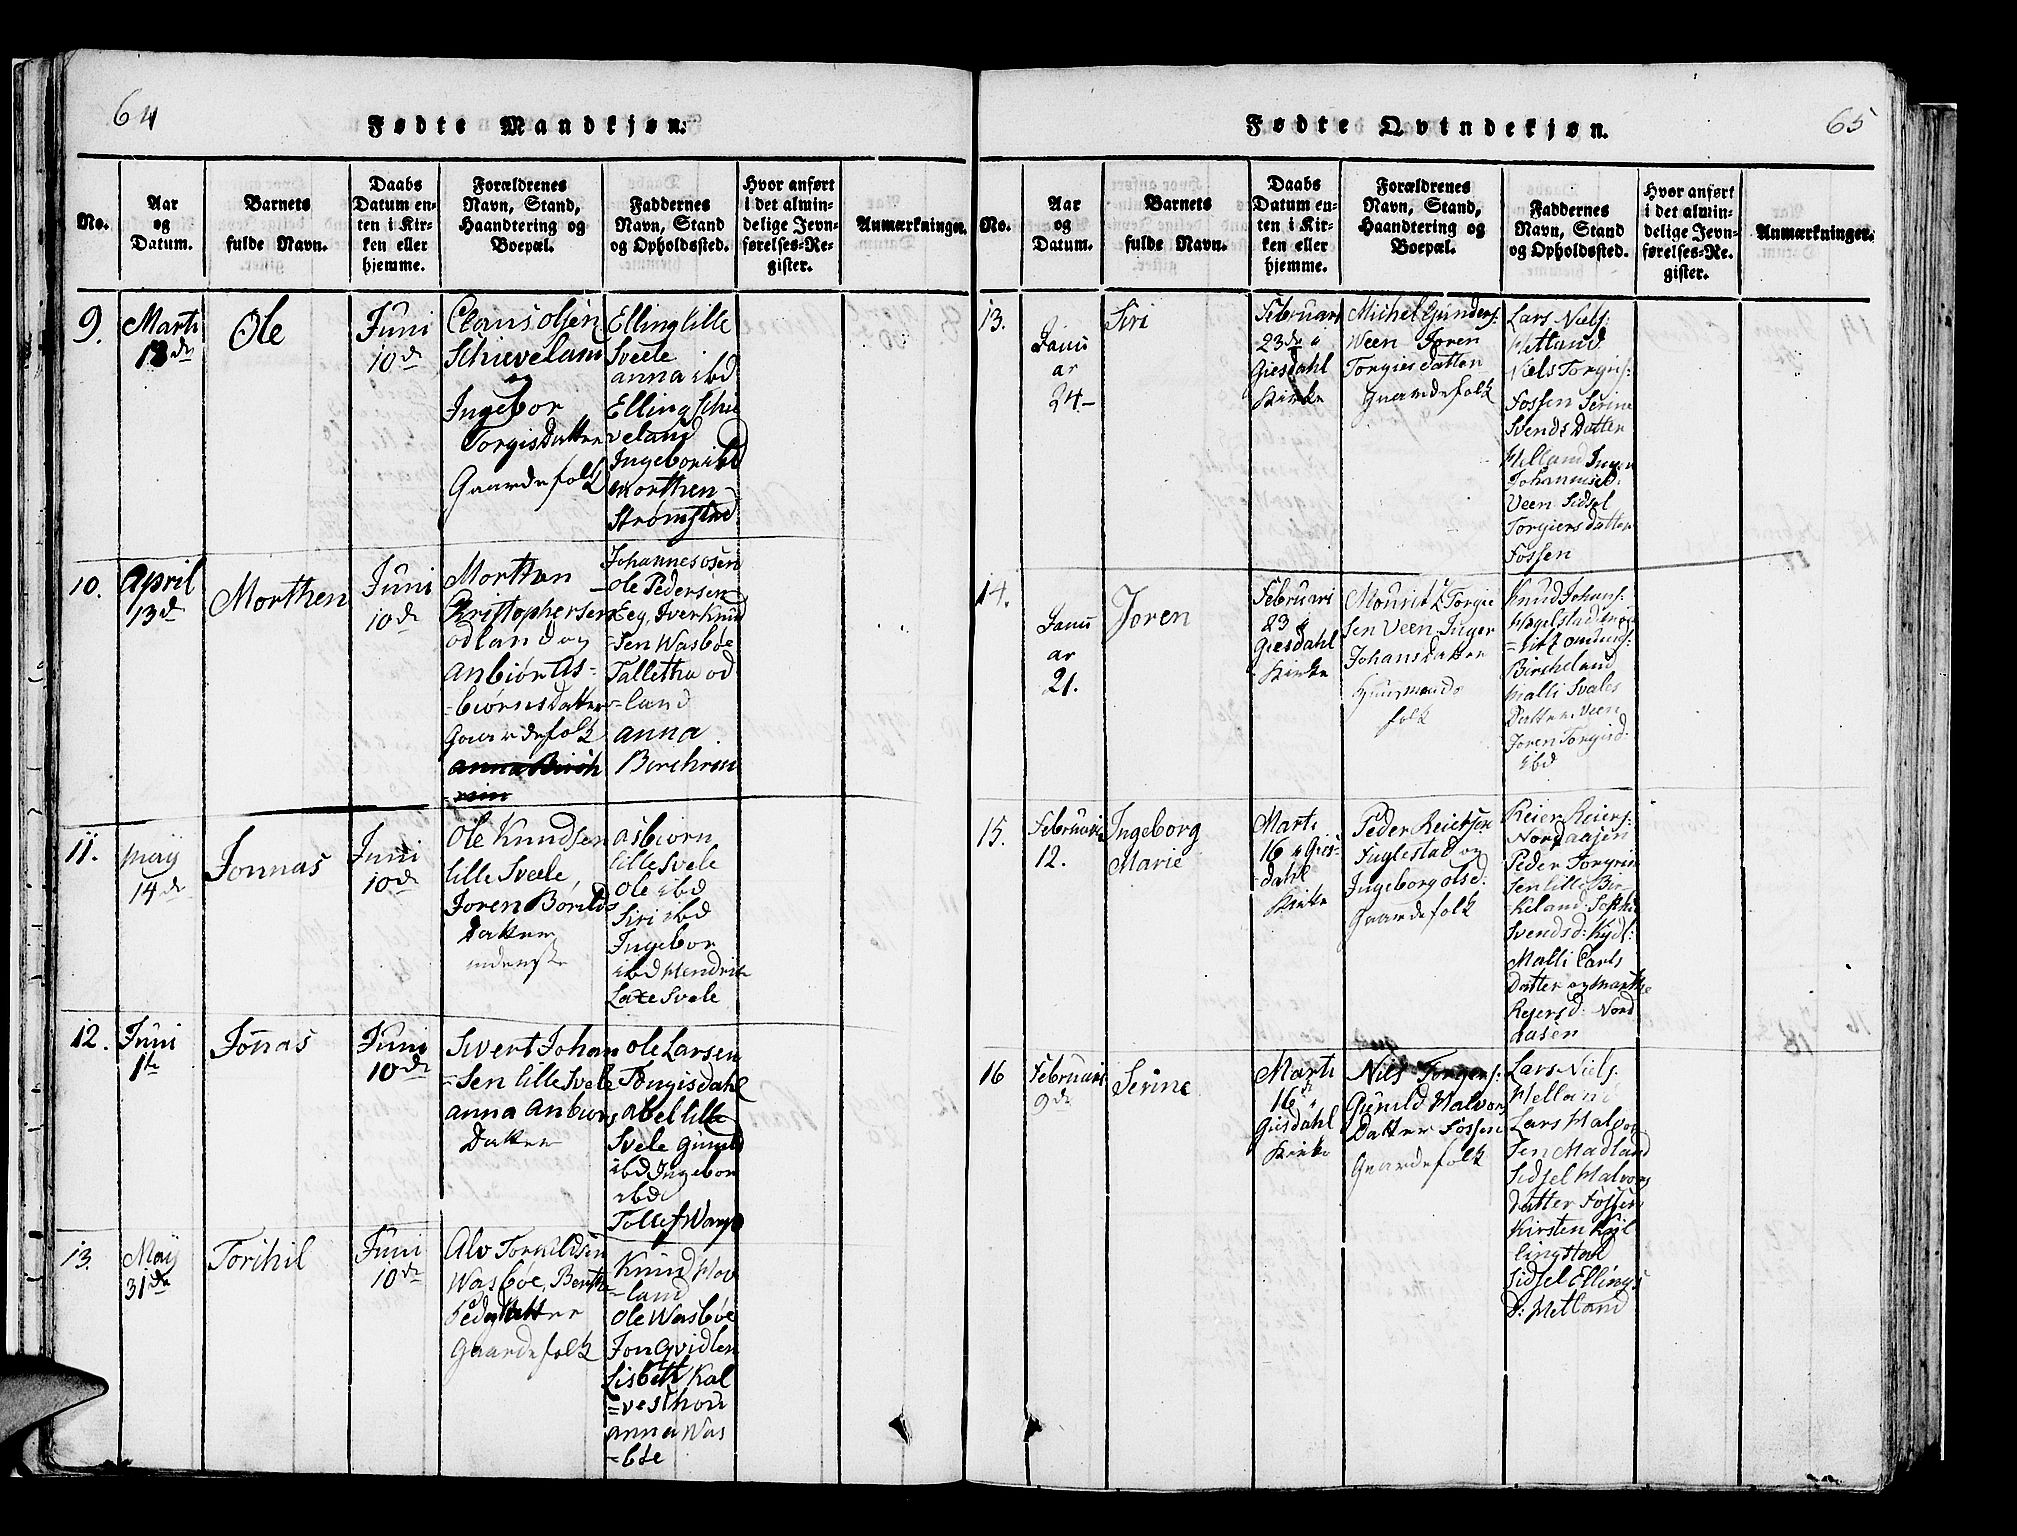 64
Fødte Mandkjøn.
No.
Aar
og
Datum.
Barnets
fulde Navn.
Daabs
Datum en-
ten i Kir-
ken eller
hjemme.
Forældrenes
Navn, Stand,
Haandtering og
Boepæl.
Faddernes
Navn, Stand
og Opholdssted.
Hvor anført
i det almin-
delige Jevn-
førelses-Re-
gister.
Anmærkninger.
9.
Marti
13de
Ole
Juni
10de
Claus olsen
Schieveland
og
Ingebor
Torgisdatter
Gaardefolk
Elling lille
Svele
anna ibd
Elling Schie
veland
Ingebor ibd
Morthen
Strømstad
10.
April
13de
Morthen
Juni
10de
Morthen
Christophersen
odland og
Anbiør As-
-biørnsdatter
Gaardefolk
anna Birch
-rein
Johannes osen
ole Pedersen
Eeg, Iver Knud
-sen Wasbøe
Talletha od
-land
anna
Birchrein
11.
May
14de
Jonnas
Juni
10de
ole Knudsen
lille Svele,
Joren Børilds
Datter
asbiørn
lille Svele
ole ibd
Siri ibd
Ingebor
ibd Hendrik
Laxesvele
12.
Juni
1te
Jonas
Juni
10de
Sivert Johan
-sen lille Svele
anna Anbiørs
Datter
ole Larsen
Tongisdahl
abel lille
Svele Gunild
ibd Ingebor
ibd
Tollef
13.
May
31de
Torihil
Juni
10de
Alv Torkildsen
Wasbøe, Benthe
Peders Datter
Gaardefolk
Knud Hov
-land
ole Wasbøe
Jon Qvidlen
Lisbeth Kal
=vesthon
anna Was
-bøe
65
Fødte Qvindekjøn.
No.
Aar
og
Datum.
Barnets
fulde Navn.
Daabs
Datum en-
ten i Kir-
ken eller
hjemme.
Forældrenes
Navn, Stand,
Haandtering og
Boepæl.
Faddernes
Navn, Stand
og Opholdssted.
Hvor anført
i det almin-
delige Jevn-
førelses-Re-
gister.
Anmærkninger.
13.
Janu
ar
24-
Siri
Februari
23de i
Giesdahl
Kirke
Michel Gunders:
Veen Joren
Torgiesdatter
Gaardefolk
Lars Niels:
Hetland
Niels Torgris:
Fossen Serine
Svends Datter
Helland Inger
Johannesd:
Veen Sidsel
Torgiersdatter
Fossen
14.
Janu
ar
21.
Joren
Februari
23 i
Giesdahl
Kirke
Mourit Torgie
sen Veen Inger
Johansdatter
Huusmands
folk
Knud Johans:
Birkeland
Malli Svales
Datter Veen
Joren Torgisd:
ibd
15.
Februari
12.
Ingeborg
Marie
Marti
16 i Gies-
-dahl
Kirke
Peder Reiersen
Fuglestad og
Ingeborg olsd:
Gaardefolk
Reier Reiers:
Nordaasen
Peder Torgrim
sen lille Bir-
-keland Sophie
Svendsd: Kydl:
Malli Carls
Datter og Marthe
Reiersd: Nord
aasen
16
Februari
9de
Serine
Marti
16 i
Giesdahl
Kirke
Niels Torgers:
Gunild Halvors
Datter Fossen
Gaardefolk
Lars Niels:
Helland
Lars Halvor
sen Madland
Sidsel Halvors
Datter Fossen
Kirsten Kyl
lingstad
Sidsel Ellings
D: Hetland